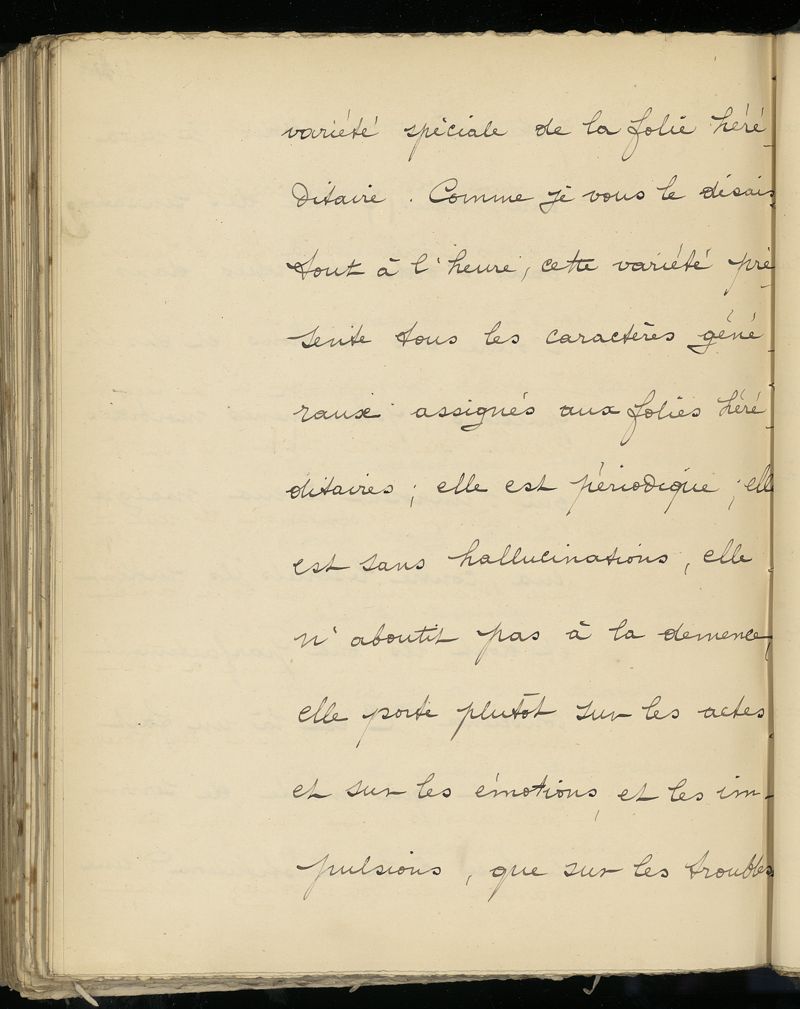 variété spéciale de la folie héré-
ditaire. Comme je vous le disais
tout à l'heure, cette variété pré-
sente tous les caractères géné-
raux assignés aux folies héré-
ditaires ; elle est périodique ; elle
est sans hallucinations, elle
n'aboutit pas à la demence,
elle porte plutôt sur les actes
et sur les émotions, et les im-
pulsions, que sur les troubles